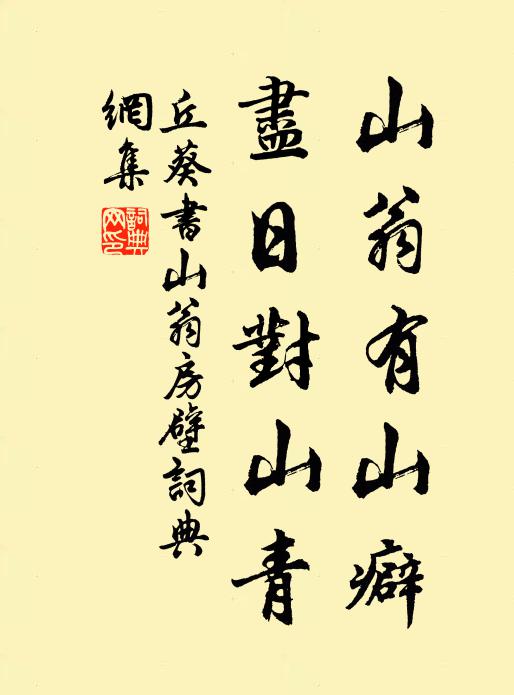 山翁有山癖
盡日對山青
丘葵書山翁房壁詞典
網集
詞典
网印